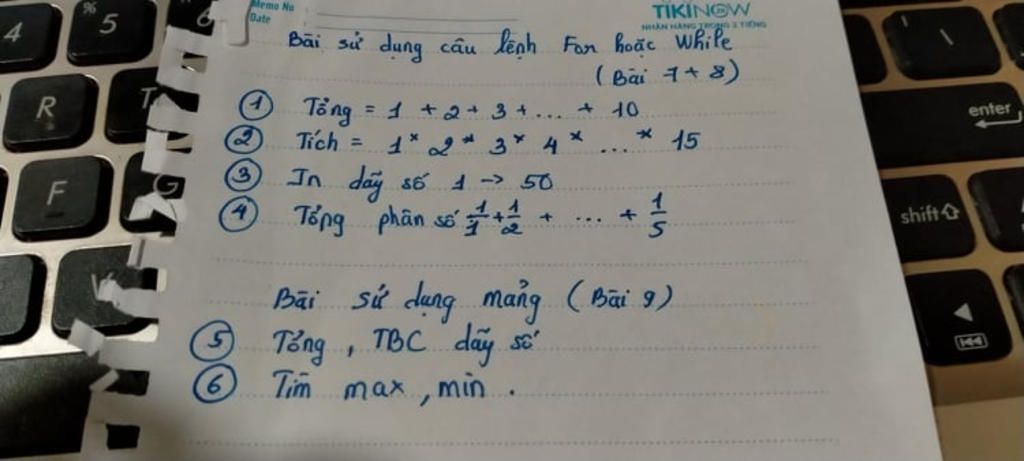 4
%
5
6
R
T
F
G
V
enter
shift
Memo No
Date
TIKINOW
NHẬN HÀNG TRONG 2 TIẾNG
Bài sử dụng câu lệnh For hoặc While
(Bài 7 + 8)
① Tổng = 1 + 2 + 3 + ... + 10
② Tích = 1 * 2 * 3 * 4 * ... * 15
③ In dãy số 1 → 50
④ Tổng phân số 1/1 + 1/2 + ... + 1/5
Bài sử dụng mảng (Bài 9)
⑤ Tổng, TBC dãy số
⑥ Tìm max, min.